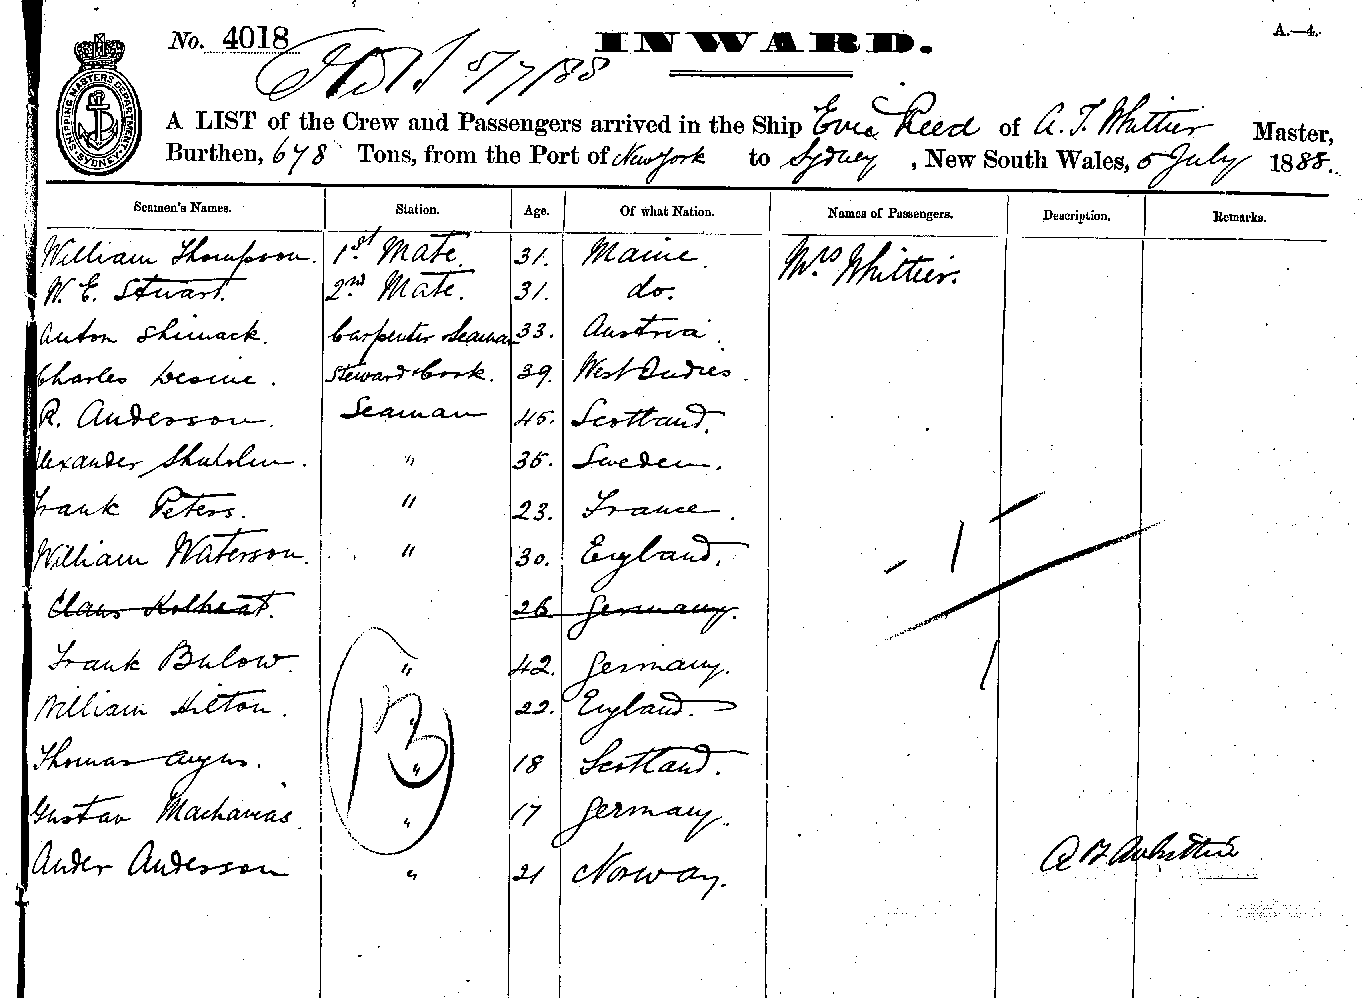 No. 4018
INWARD.
A.—4.
5/7/88
SHIPPING MASTERS DEPARTMENT SYDNEY
A LIST of the Crew and Passengers arrived in the Ship Evie Reed of A. T. Whittier Master,
Burthen, 678 Tons, from the Port of New York to Sydney, New South Wales, 5 July 1888.
Seamen's Names. Station. Age. Of what Nation. Names of Passengers. Description. Remarks.
William Thompson. 1st Mate. 31. Maine. Mrs Whittier.
W. E. Stuart. 2nd Mate. 31. do.
Anton Shimack. Carpenter Seaman 33. Austria.
Charles Steward & Cook. 39. West Indies.
R. Anderson. Seaman 45. Scotland.
Alexander " 35. Sweden.
Frank Peters. " 23. France.
William Waterson. " 30. England.
Claus 26 Germany.
Frank Bulow. " 42. Germany.
William Hilton. " 22. England.
Thomas Angus. " 18 Scotland.
Gustav " 17 Germany.
Ander Anderson " 21 Norway.
13
1
1